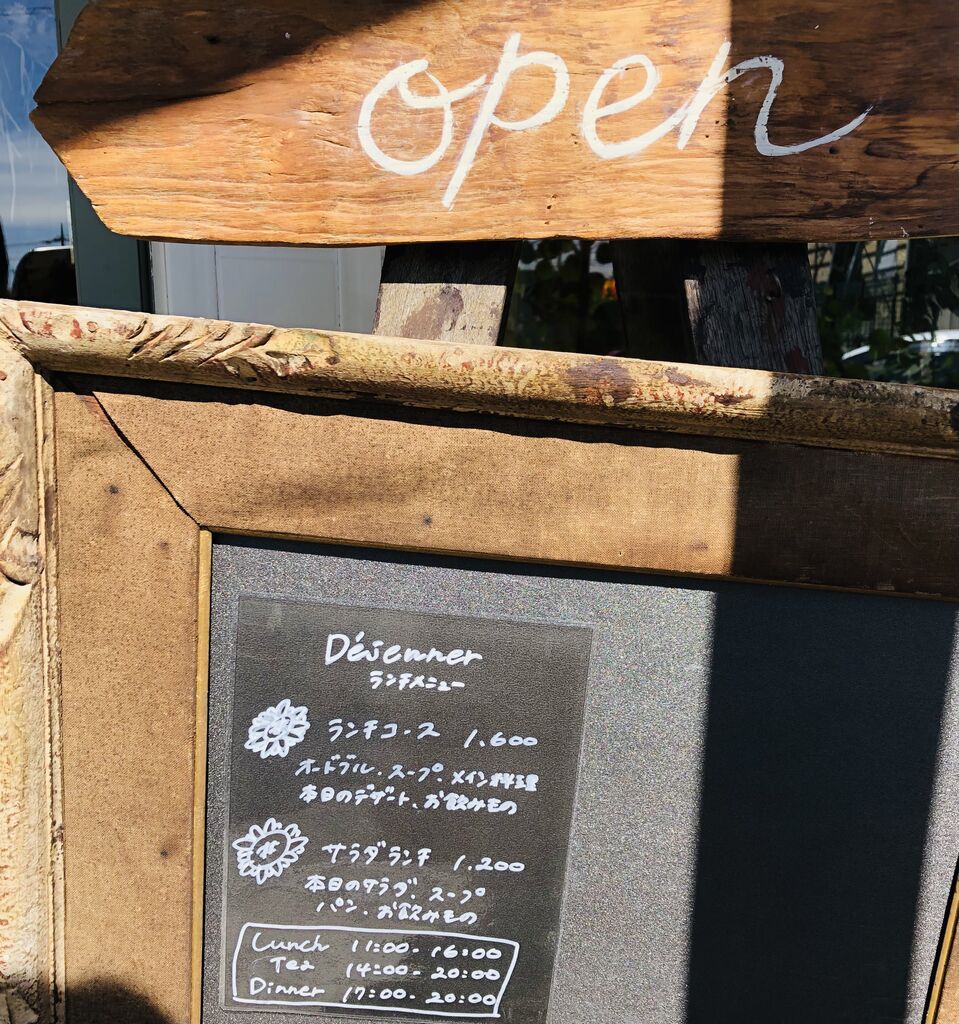 open
Déjeuner
ランチメニュー
ランチコース 1.600
オードブル、スープ、メイン料理
本日のデザート、お飲みもの
サラダランチ 1.200
本日のサラダ、スープ
パン、お飲みもの
Lunch 11:00-16:00
Tea 14:00-20:00
Dinner 17:00-20:00